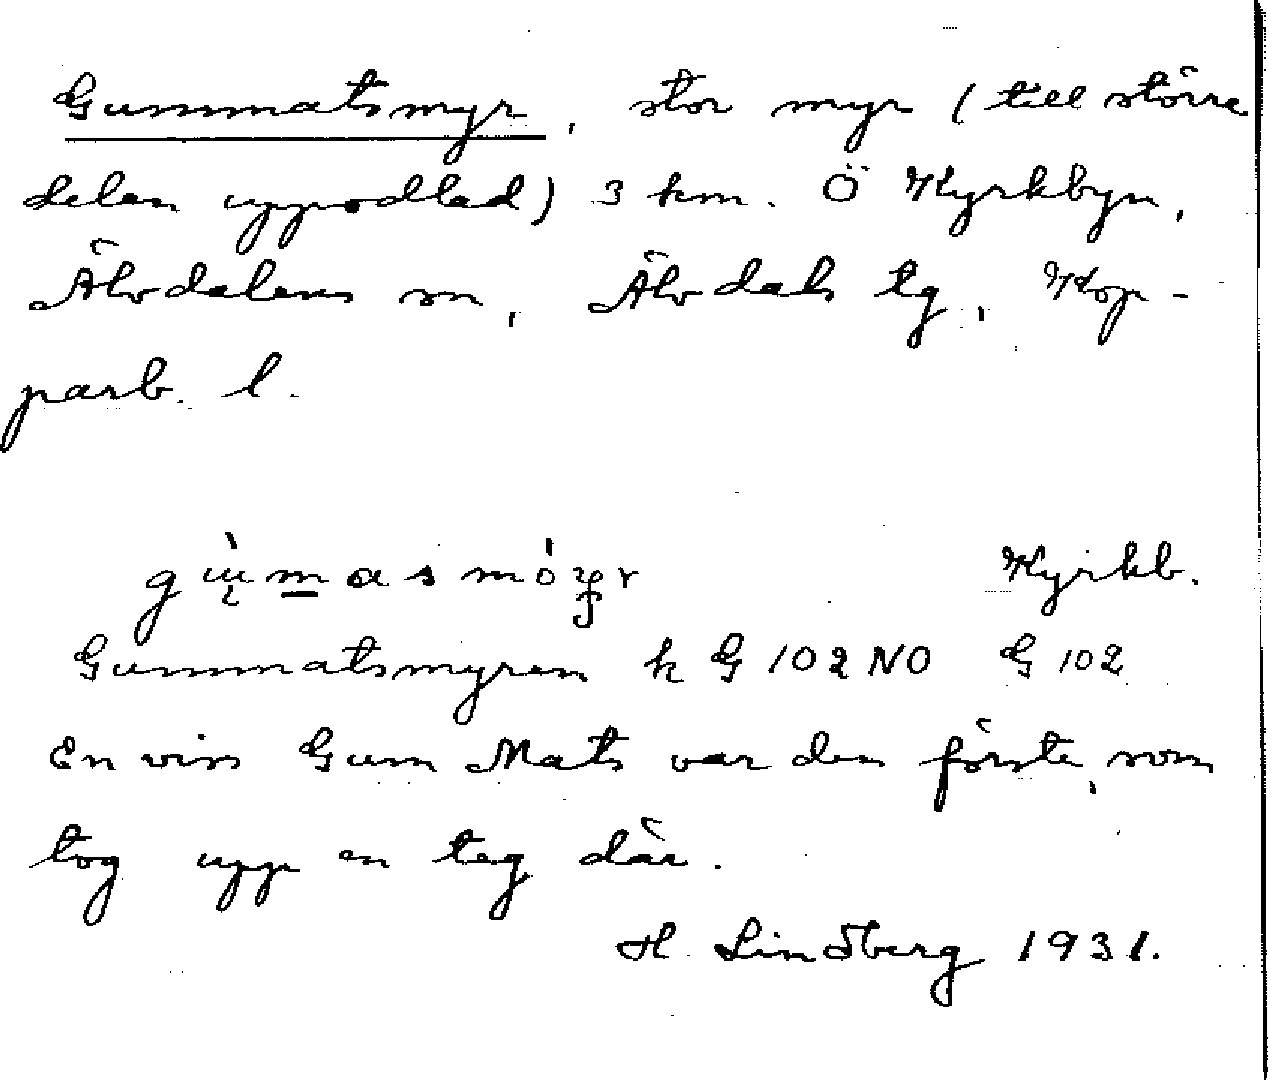 Gummatsmyr, stor myr (till större
delen uppodlad) 3 km. Ö Kyrkbyn,
Älvdalens sn, Älvdals tg, Kop-
parb. l.
Kyrkb.
Gummatsmyren k G 102 NO G 102
En viss Gum Mats var den förste, som
tog upp en teg där.
H. Lindberg 1931.